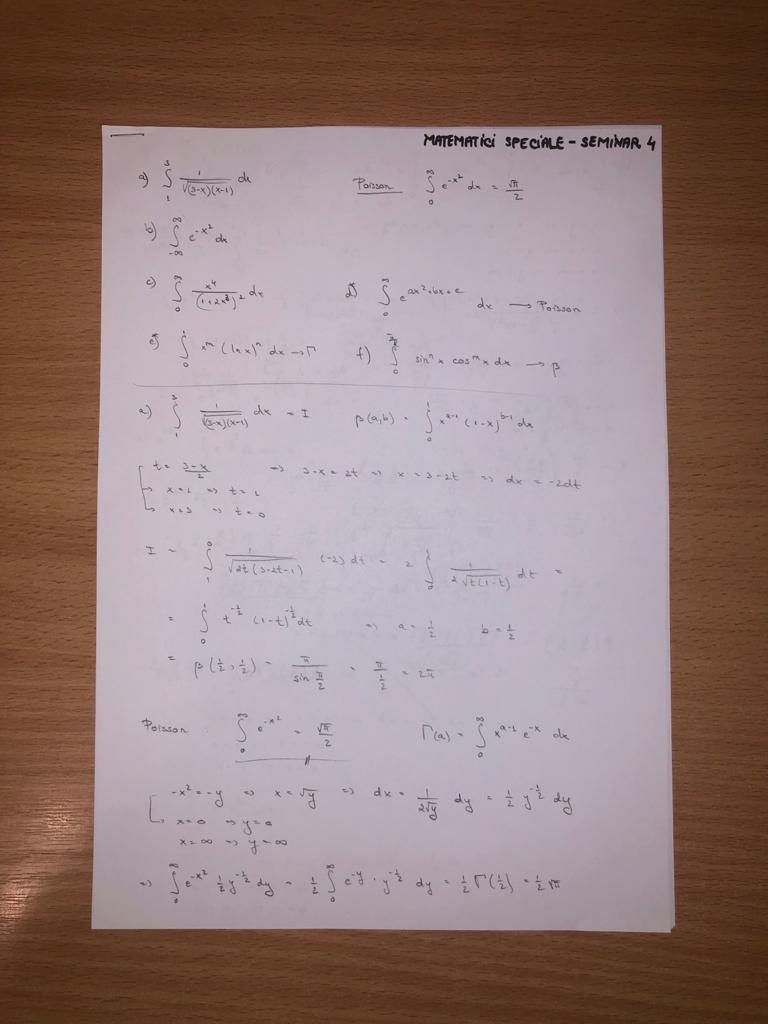 MATEMATICI SPECIALE - SEMINAR 4
a) ∫₁³ 1/√((3-x)(x-1)) dx    Poisson    ∫₀^∞ e^(-x²) dx = √π/2
b) ∫_(-∞)^∞ e^(-x²) dx
c) ∫₀^∞ x⁴/(1+2x³)² dx    d*) ∫₀^∞ e^(ax²+bx+c) dx → Poisson
e*) ∫₀¹ x^m (ln x)^n dx → Γ    f) ∫₀^(π/2) sin^n x cos^m x dx → β
a) ∫₁³ 1/√((3-x)(x-1)) dx = I    β(a,b) = ∫₀¹ x^(a-1) (1-x)^(b-1) dx
t = (3-x)/2 => 3-x = 2t => x = 3-2t => dx = -2dt
x=1 => t=1
x=3 => t=0
I = ∫₁⁰ 1/√(2t(3-2t-1)) (-2) dt = 2 ∫₀¹ 1/(2√(t(1-t))) dt =
= ∫₀¹ t^(-1/2) (1-t)^(-1/2) dt => a = 1/2    b = 1/2
= β(1/2, 1/2) = π/(sin π/2) = π/(1/2) = 2π
Poisson    ∫₀^∞ e^(-x²) = √π/2    Γ(a) = ∫₀^∞ x^(a-1) e^(-x) dx
-x² = -y => x = √y => dx = 1/(2√y) dy = 1/2 y^(-1/2) dy
x=0 => y=0
x=∞ => y=∞
=> ∫₀^∞ e^(-x²) 1/2 y^(-1/2) dy = 1/2 ∫₀^∞ e^(-y) · y^(-1/2) dy = 1/2 Γ(1/2) = 1/2 √π